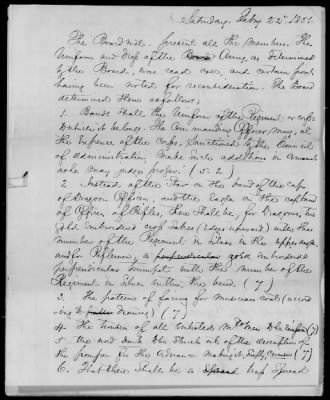 Saturday, Feby 22d 1851.
The Board met. Present all the members. The
Uniform and dress of the Army, as determined
by the Board, was read over, and certain points
having been noted for reconsideration. The Board
determined them as follows;
1. Bands shall the Uniform of the Regiment or corps
to which it belongs. The Commanding Officer may, at
the expense of the corps, sanctioned by the Council
of administration, make such additions in ornaments
as he may judge proper. (52)
2. Instead of the Star on the band of the cap
of Dragoon Officers, and the Eagle on the cap band
of Officers of Rifles, there shall be, for Dragoons, two
gold embroidered cross Sabres (edges upward) with the
number of the Regiment in silver in the upper angle,
and for Riflemen, a perpendicular gold embroidered
perpendicular trumpet with the number of the
Regiment in silver within the bend. (7)
3. The pattern of facing for musician coats (accord
ing to drawing) (7)
4. The of all enlisted men to be (7)
5. The word dark to be struck out of the description of
the pompon for the (7)
6. That there shall be a spread